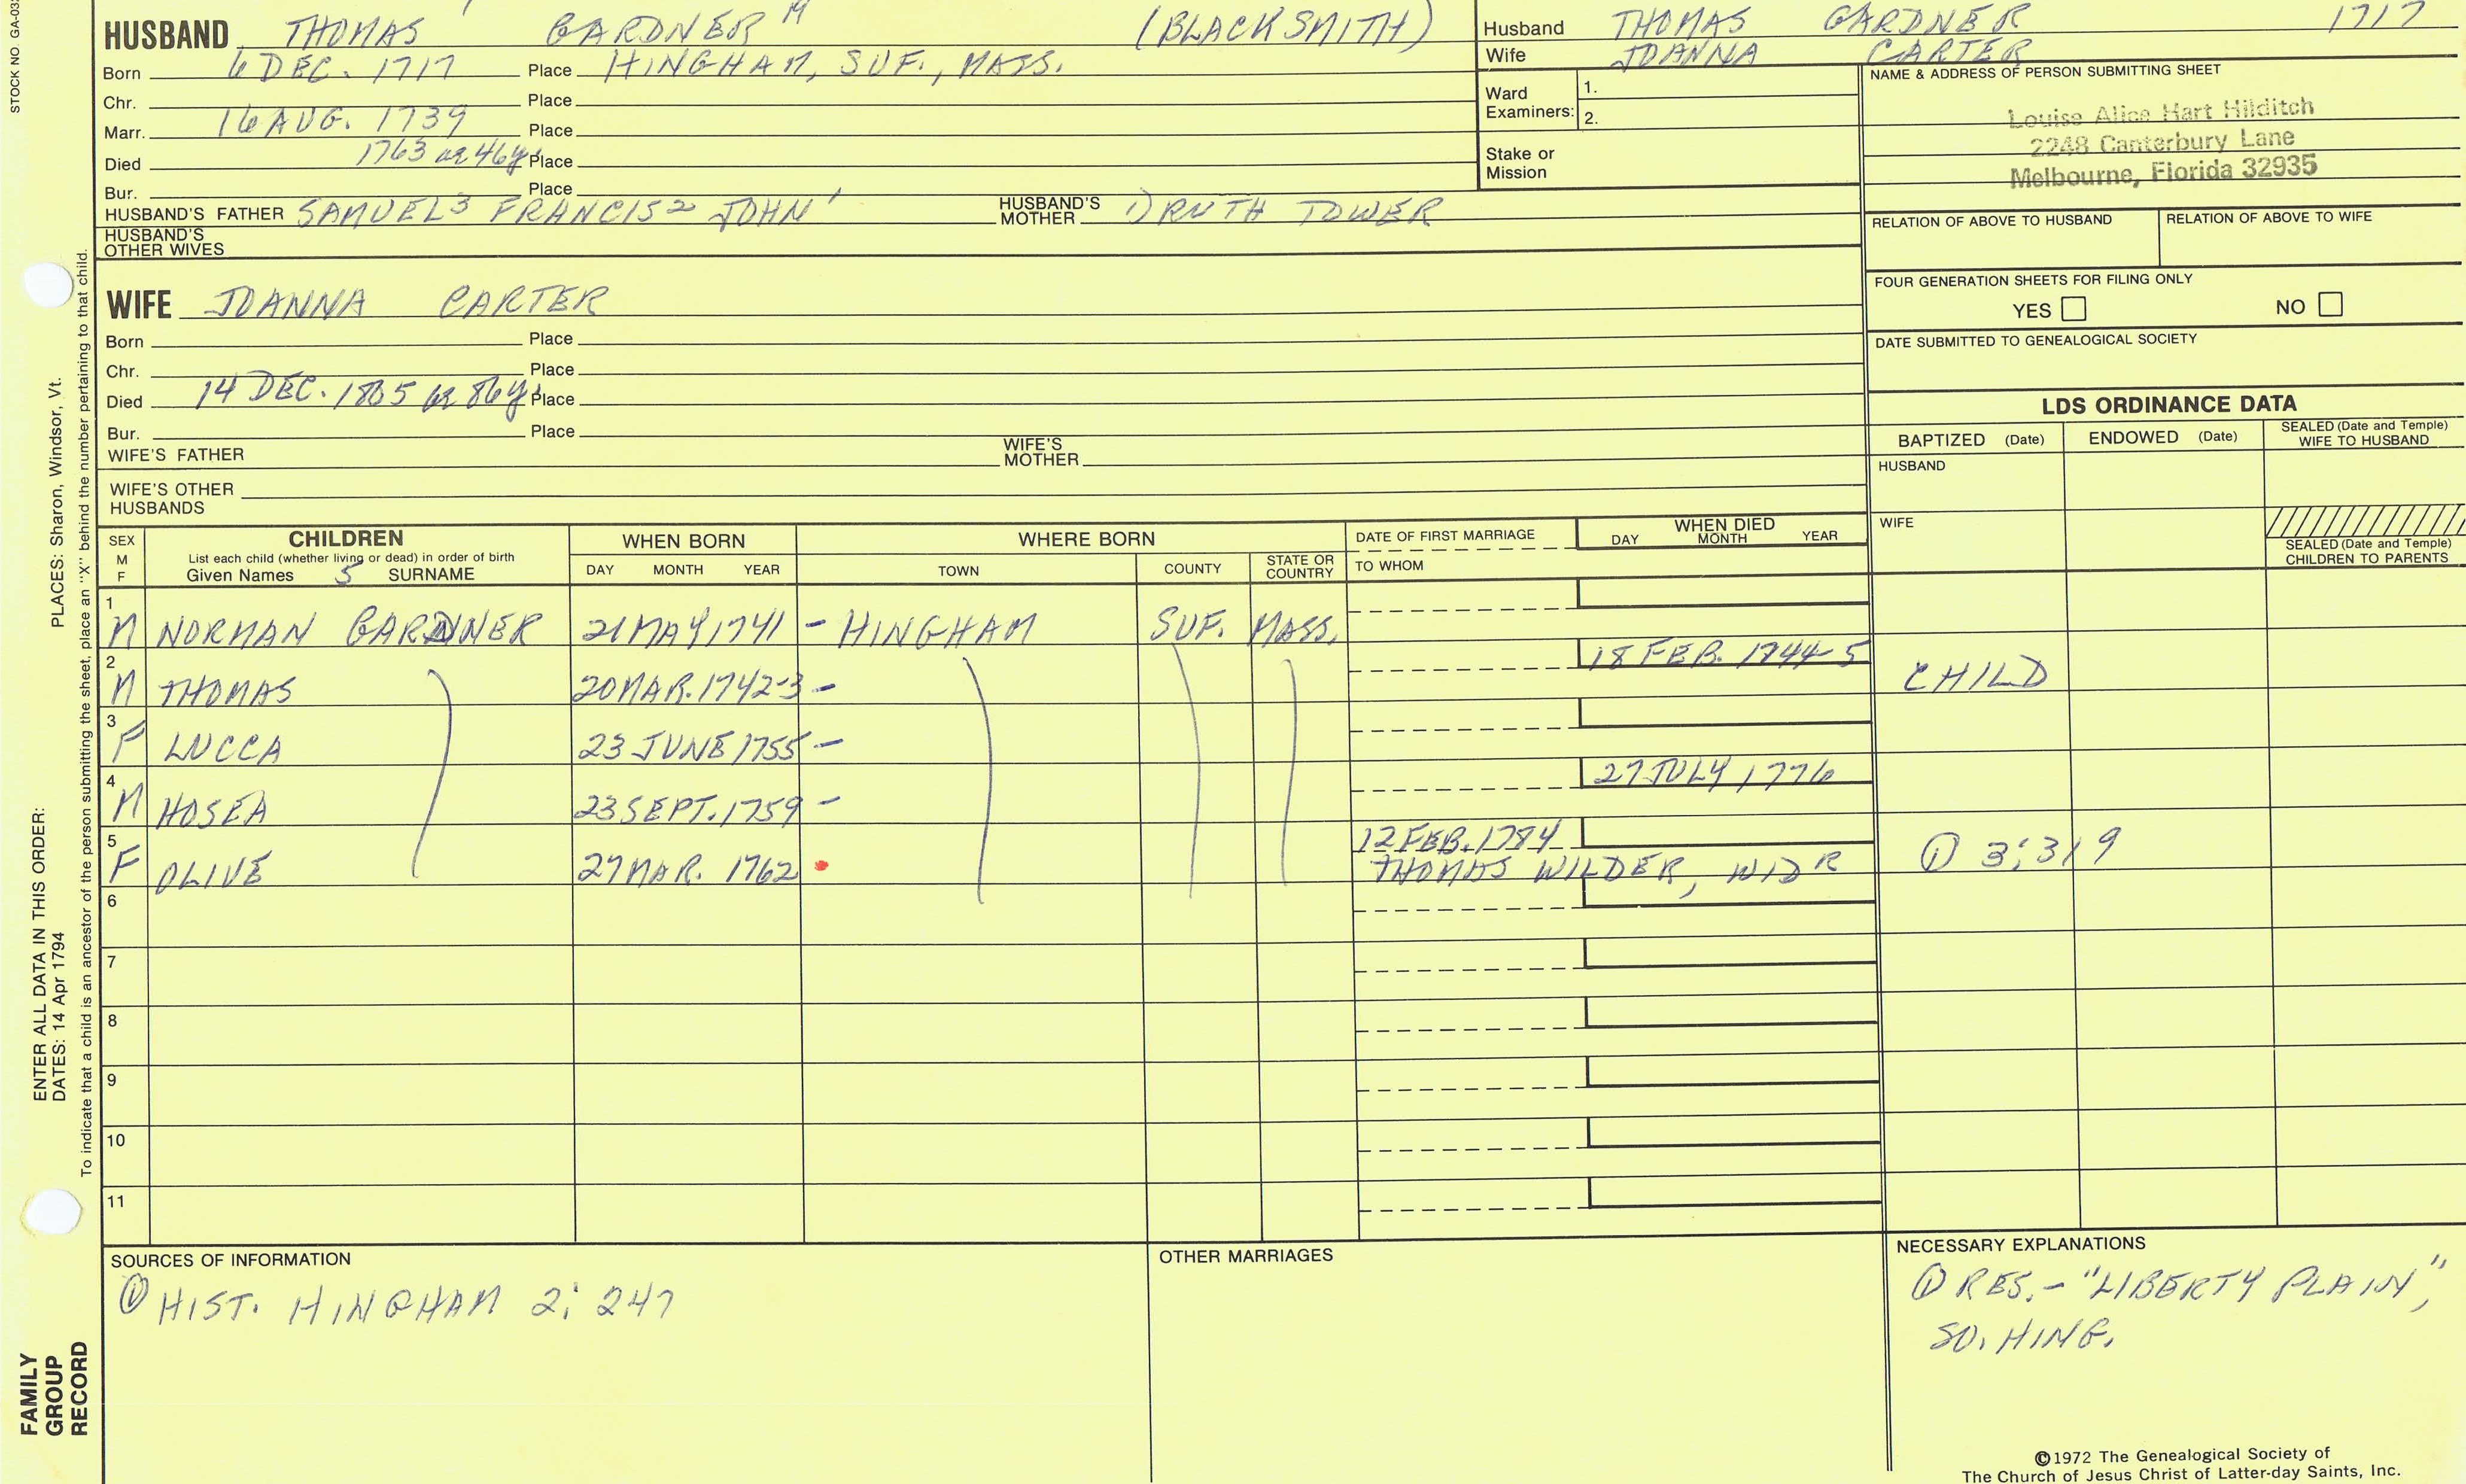 STOCK NO. GA-03
HUSBAND THOMAS GARDNER (BLACKSMITH)
Born 6 DEC. 1717 Place HINGHAM, SUF., MASS.
Chr. Place
Marr. 16 AUG. 1739 Place
Died 1763 æ 46y. Place
Bur. Place
HUSBAND'S FATHER SAMUEL3 FRANCIS2 JOHN1 HUSBAND'S MOTHER 1) RUTH TOWER
HUSBAND'S OTHER WIVES
Husband THOMAS GARDNER 1717
Wife JOANNA CARTER
Ward Examiners: 1.
2.
Stake or Mission
NAME & ADDRESS OF PERSON SUBMITTING SHEET
Louise Alice Hart Hilditch
2248 Canterbury Lane
Melbourne, Florida 32935
RELATION OF ABOVE TO HUSBAND RELATION OF ABOVE TO WIFE
FOUR GENERATION SHEETS FOR FILING ONLY
YES NO
DATE SUBMITTED TO GENEALOGICAL SOCIETY
WIFE JOANNA CARTER
Born Place
Chr. Place
Died 14 DEC. 1805 æ 86y. Place
Bur. Place
WIFE'S FATHER WIFE'S MOTHER
WIFE'S OTHER HUSBANDS
LDS ORDINANCE DATA
BAPTIZED (Date) ENDOWED (Date) SEALED (Date and Temple) WIFE TO HUSBAND
HUSBAND
WIFE
SEALED (Date and Temple) CHILDREN TO PARENTS
SEX M F
CHILDREN
List each child (whether living or dead) in order of birth
Given Names 5 SURNAME
WHEN BORN
DAY MONTH YEAR
WHERE BORN
TOWN COUNTY STATE OR COUNTRY
DATE OF FIRST MARRIAGE
TO WHOM
WHEN DIED
DAY MONTH YEAR
1 M NORMAN GARDNER 21 MAY 1741 - HINGHAM SUF. MASS.
2 M THOMAS 20 MAR. 1742-3 - 18 FEB. 1744-5 CHILD
3 F LUCCA 23 JUNE 1755 -
4 M HOSEA 23 SEPT. 1759 - 27 JULY 1776
5 F OLIVE 27 MAR. 1762 12 FEB. 1784
THOMAS WILDER, WIDR ① 3:319
6
7
8
9
10
11
SOURCES OF INFORMATION
① HIST. HINGHAM 2: 247
OTHER MARRIAGES
NECESSARY EXPLANATIONS
① RES. - "LIBERTY PLAIN",
SO. HING.
©1972 The Genealogical Society of
The Church of Jesus Christ of Latter-day Saints, Inc.
ENTER ALL DATA IN THIS ORDER:
DATES: 14 Apr 1794
PLACES: Sharon, Windsor, Vt.
To indicate that a child is an ancestor of the person submitting the sheet, place an "X" behind the number pertaining to that child.
FAMILY
GROUP
RECORD